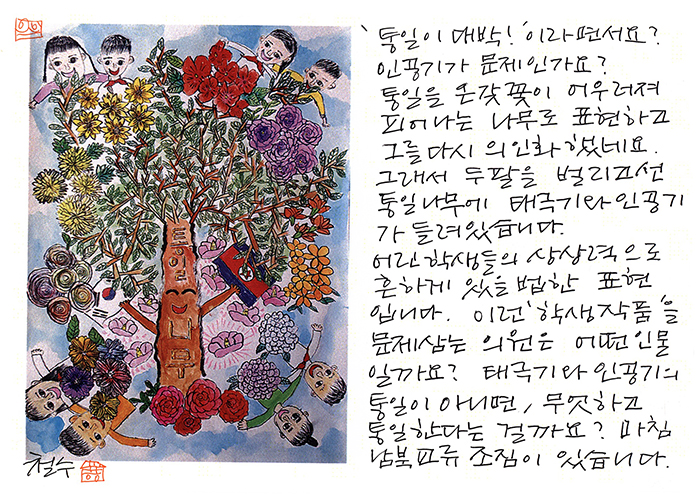 '통일이 대박!'이라면서요?
인공기가 문제인가요?
통일을 온갖 꽃이 어우러져
피어나는 나무로 표현하고
그를 다시 의인화 했네요.
그래서 두팔을 벌리고선
통일나무에 태극기와 인공기
가 들려있습니다.
어린 학생들의 상상력으로
흔하게 있을 법한 표현
입니다. 이런 '학생작품'을
문제삼는 의원은 어떤 인물
일까요? 태극기와 인공기의
통일이 아니면, 무엇하고
통일한다는 걸까요? 마침
남북교류 조짐이 있습니다.
통일
나무
철수